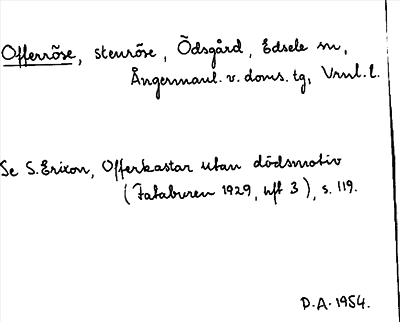 Offerröse, stenröse, Ödsgård, Edsele sn,
Ångermanl. v. doms. tg, Vrnl. l.
Se S. Erixon, Offerkastar utan dödsmotiv
(Fataburen 1929, hft 3), s. 119.
D.A. 1954.